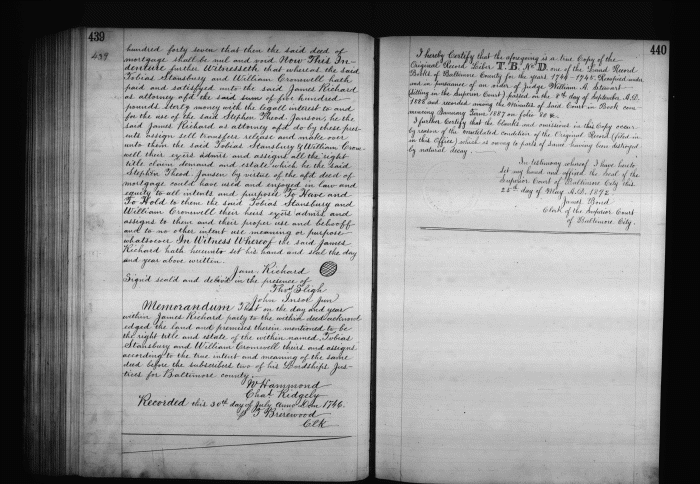 439
439
hundred forty seven that then the said deed of
mortgage shall be null and void Now This In-
denture further Witnesseth that whereas the said
Tobias Stansbury and William Cromwell hath
paid and satisfyed unto the said James Richard
as attorney afd the said sume of five hundred
pounds Sterlg money with the legall interest to and
for the use of the said Stephen Theod. Janson, he the
said James Richard as attorney afd do by these pre-
sents assign sell transfere release and make over
unto them the said Tobias Stansbury & William Crom-
well their exirs admrs and assigns all the right
title claim demand and estate which he the said
Stephen Theod. Jansen by virtue of the afd deed of
mortgage could have used and enjoyed in law and
equity to all intents and purposes To Have and
To Hold to them the said Tobias Stansbury and
William Cromwell their heirs exirs admrs and
assigns to them and their proper use and behoof
and to no other intent use meaning or purpose
whatsoever In Witness Whereof the said James
Richard hath hereunto set his hand and seal the day
and year above written
Jam. Richard
Signd seald and delivd in the presence of
Thos Sligh
John Ensor Jun
Memorandum That on the day and year
within James Richard party to the within deed acknowl
edged the land and premises therein mentioned to be
the right title and estate of the within named Tobias
Stansbury and William Cromwell theirs and assigns
according to the true intent and meaning of the same
deed before the subscribers two of his Lordships Jus-
tices for Baltimore county.
W Hammond
Chas Ridgely
Recorded this 30th day of July Anno Dom 1746.
T Brerewood
Clk
440
I hereby Certify that the aforegoing is a true Copy of the
Original Record Liber T. B. No D. one of the Land Record
Books of Baltimore County for the years 1744-1745. Recopied under
and in pursuance of an order of Judge William A. Stewart
(sitting in the Superior Court) passed on the 8th day of September A.D.
1886 and recorded among the Minutes of said Court in Book com-
mencing January Term 1887 on folio 80 &c.
I further Certify that the blanks and omissions in this Copy occur
by reason of the mutilated condition of the Original Record (filed
in this Office) which is owing to parts of same having been distroyed
by natural decay.
In testimony whereof I have hereto
set my hand and affixed the Seal of the
Superior Court of Baltimore City this
25th day of May A.D. 1892.
James Bond
Clerk of the Superior Court
of Baltimore City.